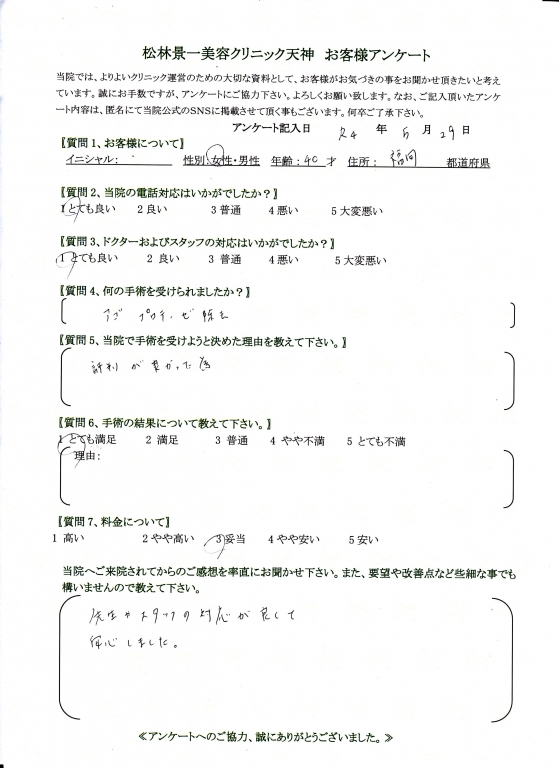 松林景一美容クリニック天神　お客様アンケート
当院では、よりよいクリニック運営のための大切な資料として、お客様がお気づきの事をお聞かせ頂きたいと考え
ています。誠にお手数ですが、アンケートにご協力下さい。よろしくお願い致します。なお、ご記入頂いたアンケ
ート内容は、匿名にて当院公式のSNSに掲載させて頂く事もございます。何卒ご了承下さい。
アンケート記入日　24　年　5　月　29　日
【質問1、お客様について】
イニシャル：　性別：女性・男性　年齢：40　才　住所：　福岡　都道府県
【質問2、当院の電話対応はいかがでしたか？】
1 とても良い　2 良い　3 普通　4 悪い　5 大変悪い
【質問3、ドクターおよびスタッフの対応はいかがでしたか？】
1 とても良い　2 良い　3 普通　4 悪い　5 大変悪い
【質問4、何の手術を受けられましたか？】
アゴ　プロテーゼ　除去
【質問5、当院で手術を受けようと決めた理由を教えて下さい。】
評判が良かった為
【質問6、手術の結果について教えて下さい。】
1 とても満足　2 満足　3 普通　4 やや不満　5 とても不満
理由：
【質問7、料金について】
1 高い　2 やや高い　3 妥当　4 やや安い　5 安い
当院へご来院されてからのご感想を率直にお聞かせ下さい。また、要望や改善点など些細な事でも
構いませんので教えて下さい。
先生やスタッフの対応が良くて
安心しました。
≪アンケートへのご協力、誠にありがとうございました。≫